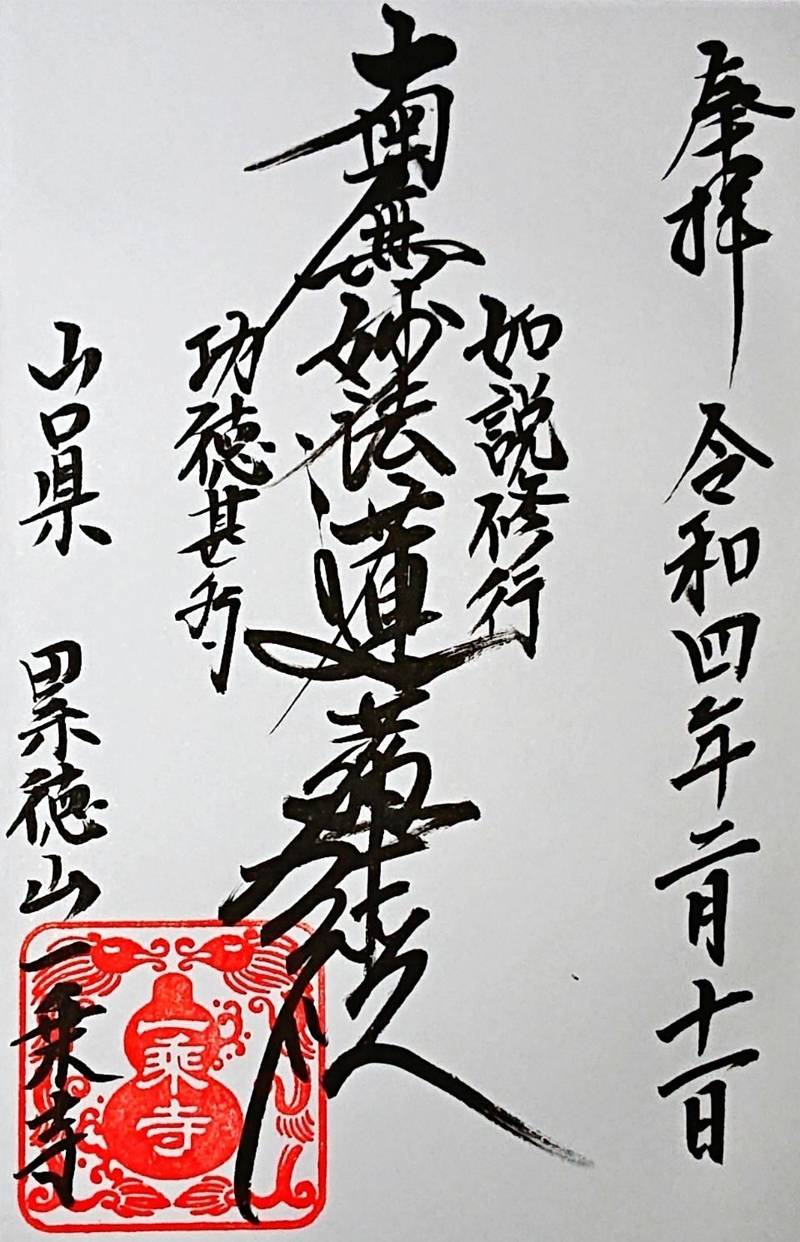 奉拝 令和四年二月十一日
如説修行
南無妙法蓮華経
功徳甚多
山口県 累徳山一乗寺
一乘寺